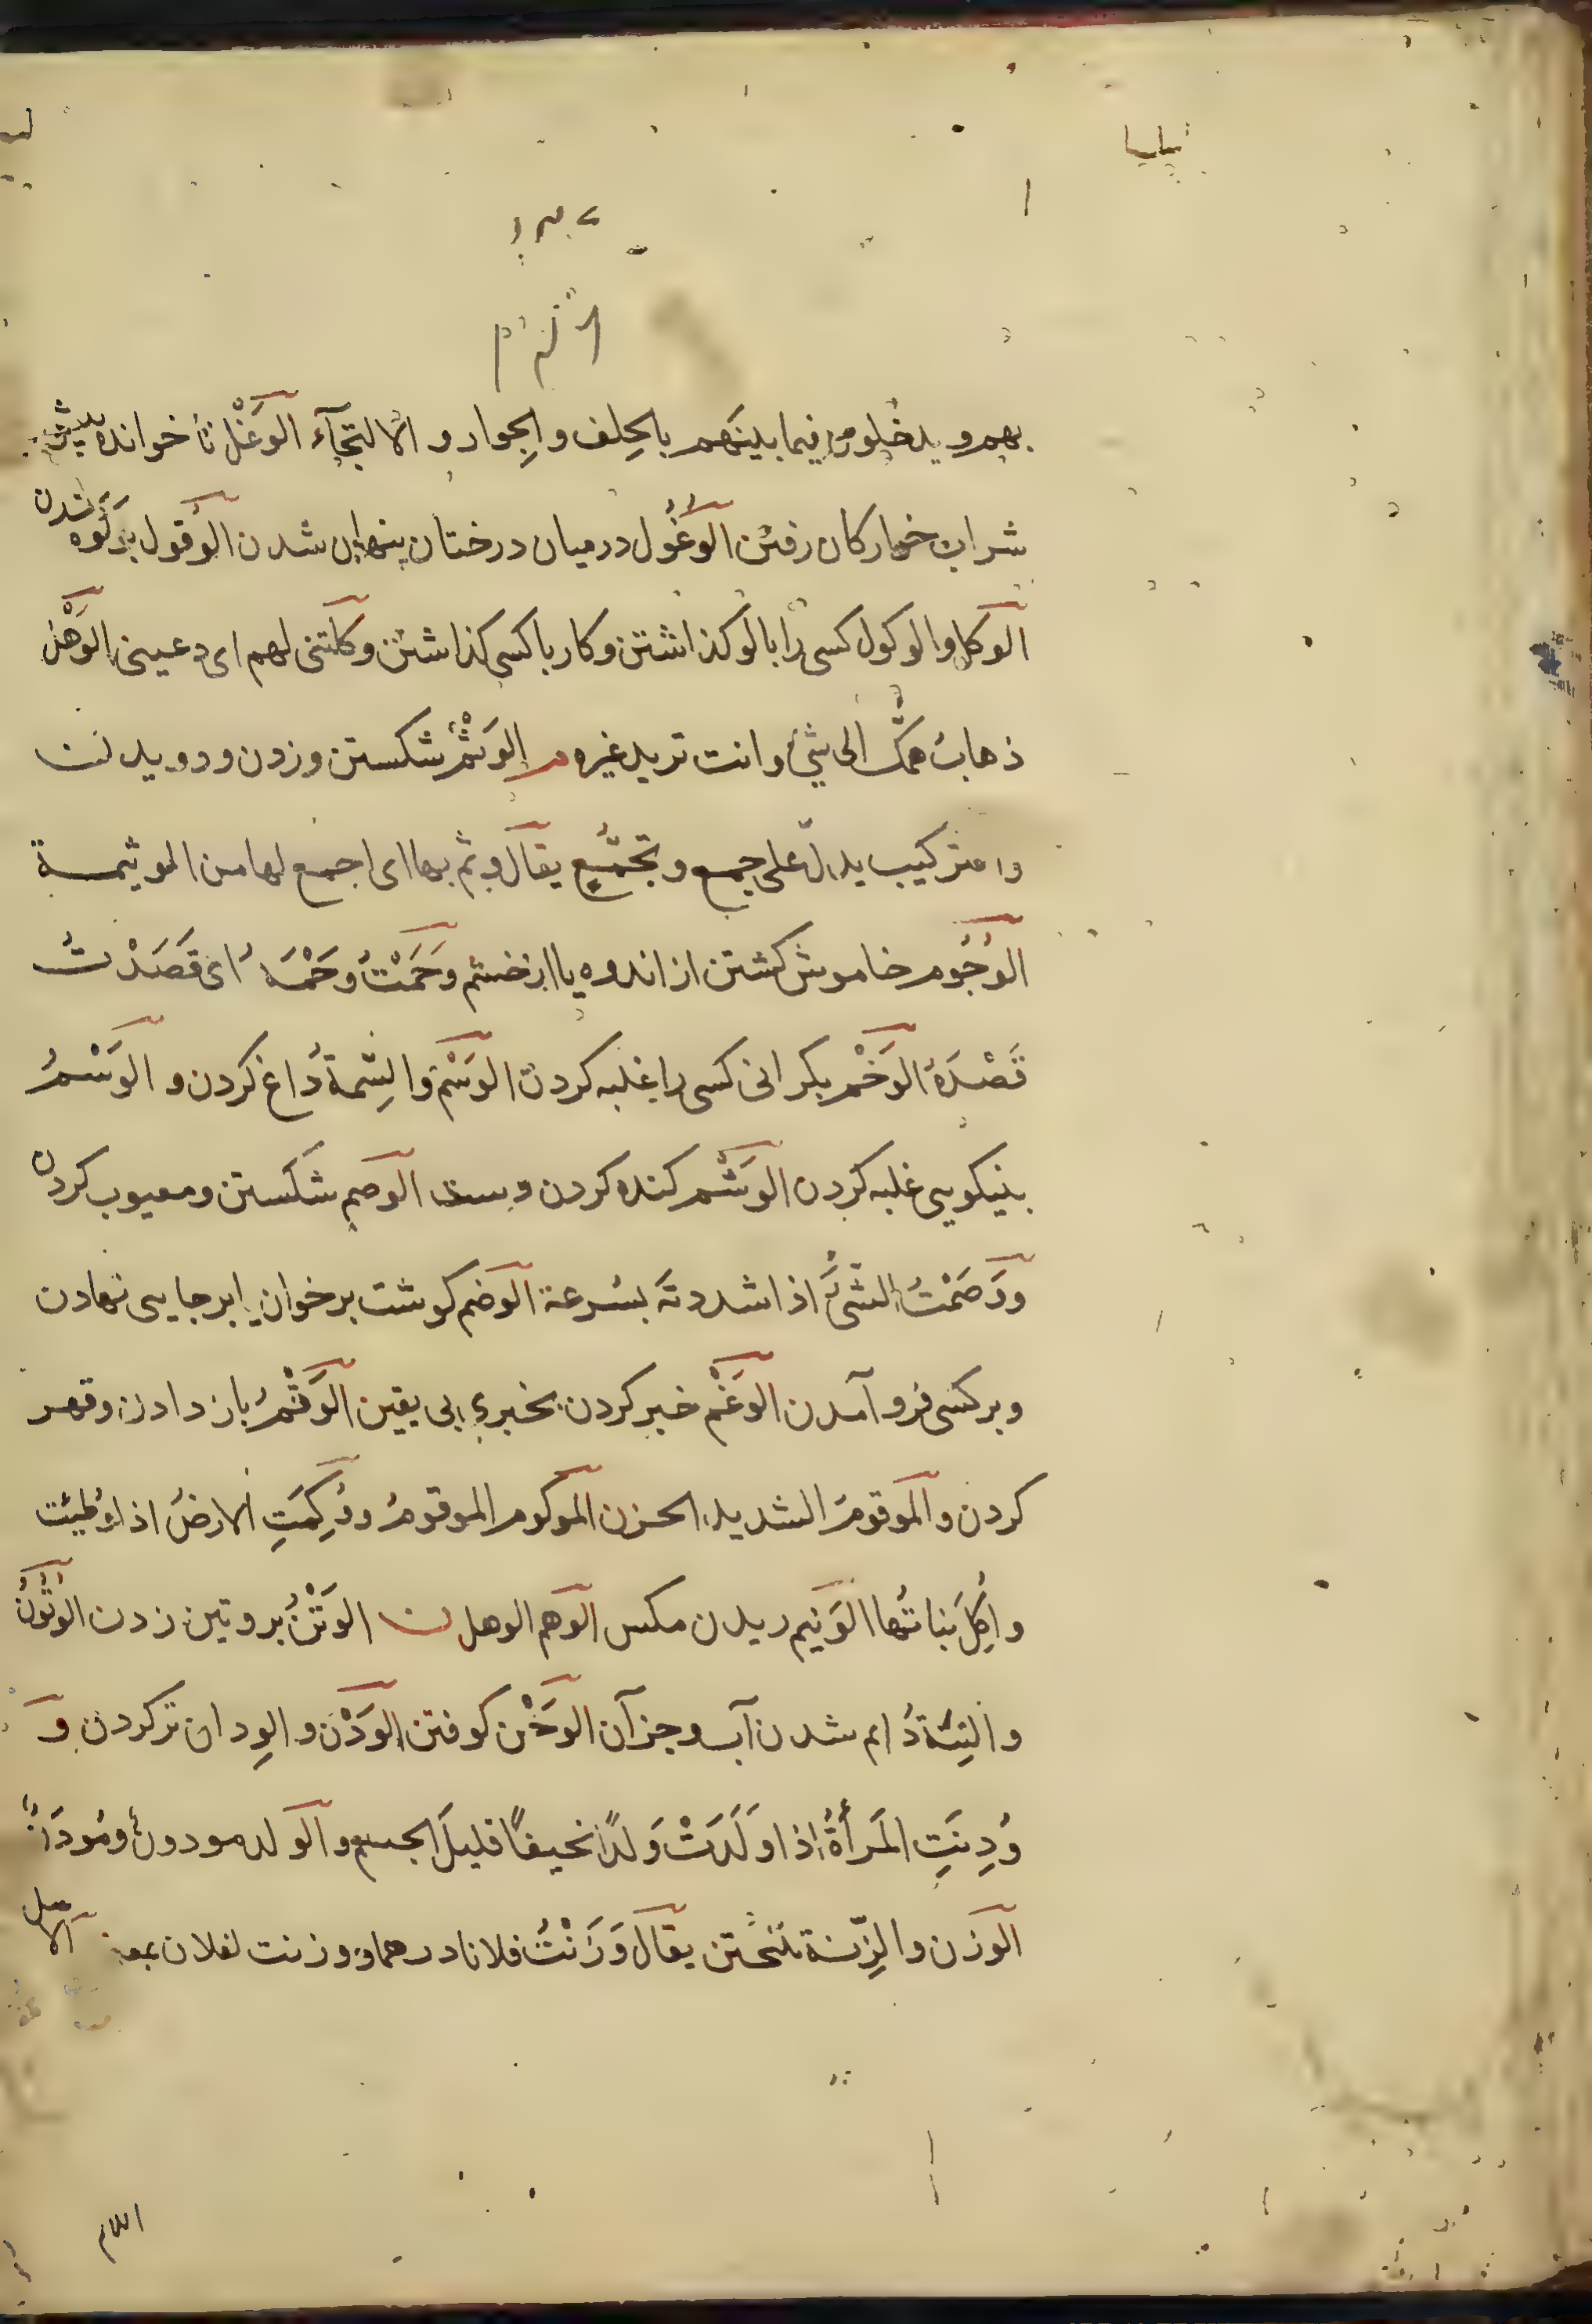 بهم ويدخلون فيما بينهم بالحِلف والجِوار والالتجآء الوَغْل ناخوانده پيش
شراب خوارکان رفتن الوُغُول درميان درختان پنهان شدن الوُقول بر کوه شدن
الوکل والوکول کسى را بالو کذاشتن وکار با کسى کذاشتن وکلتنى لهم اى دعينى الوَهْل
ذهابُ همّک الى شئ وانت تريد غيره م الوَثْمُ شکستن وزدن ودويدن
واين ترکيب يدلّ على جمع وتجمّع يقال وثم بها اى اجمع لها من الوثيمة
الوُجُوم خاموش کشتن از اندوه يا از خشم وَحَمْتُ وَحْمَهُ اى قَصَدْتُ
قَصْدَهُ الوَخْم بکرانى کسى را غلبه کردن الوَسْم والسِمة داغ کردن والوَسْمُ
بنيکويى غلبه کردن الوَشْم کنده کردن دست الوصم شکستن ومعيوب کردن
ووَصَمْتُ الشَّئَ اذا شددته بسُرعة الوضم کوشت بر خوان يا بر جايى نهادن
وبر کسى فرو آمدن الوَغْم خبر کردن بخبرى بى يقين الوَقْمُ باز دادن وقهر
کردن والموقومُ الشديد الحزن الموکوم الموقومُ ووُکِمَتِ الارضُ اذا وُطِئت
واُکِلَ نباتُها الوَنيم ريدن مکس الوهم الوهل ن الوَتْنُ بر وتين زدن الوُتُونُ
والتِنَةُ دايم شدن آب وجز آن الوَخْن کوفتن الوَدْن والوِدان تر کردن و
وُدِنَتِ المَرأةُ اذا وَلَدَتْ وَلَدًا نحيفًا قليلَ الجسم والولد مودونٌ ومُودَنٌ
الوزن والزِّنة سَختن يقال وَزَنْتُ فلانا درهما ووزنت لفلان بمعنى الاصل
اللام